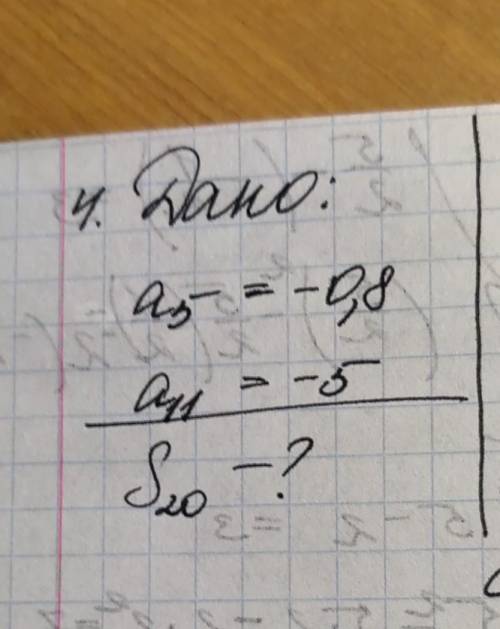 4. Дано:
a₅ = -0,8
a₁₁ = -5
S₂₀ - ?